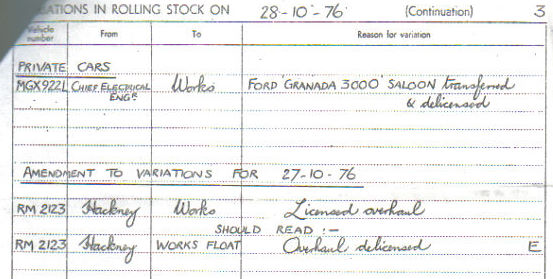 ATIONS IN ROLLING STOCK ON 28-10-'76 (Continuation) 3
Vehicle number From To Reason for variation
PRIVATE CARS
MGX922L CHIEF ELECTRICAL ENGR Works FORD 'GRANADA 3000' SALOON transferred
& delicensed
AMENDMENT TO VARIATIONS FOR 27-10-76
RM 2123 Hackney Works Licensed overhaul
SHOULD READ :-
RM 2123 Hackney WORKS FLOAT Overhaul delicensed E